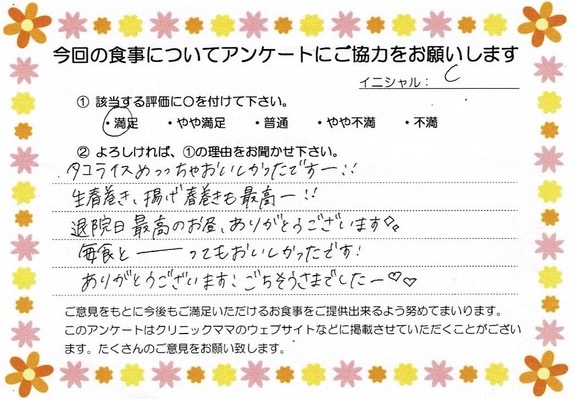 今回の食事についてアンケートにご協力をお願いします
イニシャル： C
① 該当する評価に〇を付けて下さい。
・満足 ・やや満足 ・普通 ・やや不満 ・不満
② よろしければ、①の理由をお聞かせ下さい。
タコライスめっちゃおいしかったですー!!
生春巻き、揚げ春巻きも最高ー!!
退院日最高のお昼、ありがとうございます♡♡
毎食と――ってもおいしかったです!
ありがとうございます! ごちそうさまでしたー♡♡
ご意見をもとに今後もご満足いただけるお食事をご提供出来るよう努めてまいります。
このアンケートはクリニックママのウェブサイトなどに掲載させていただくことがござい
ます。たくさんのご意見をお願い致します。